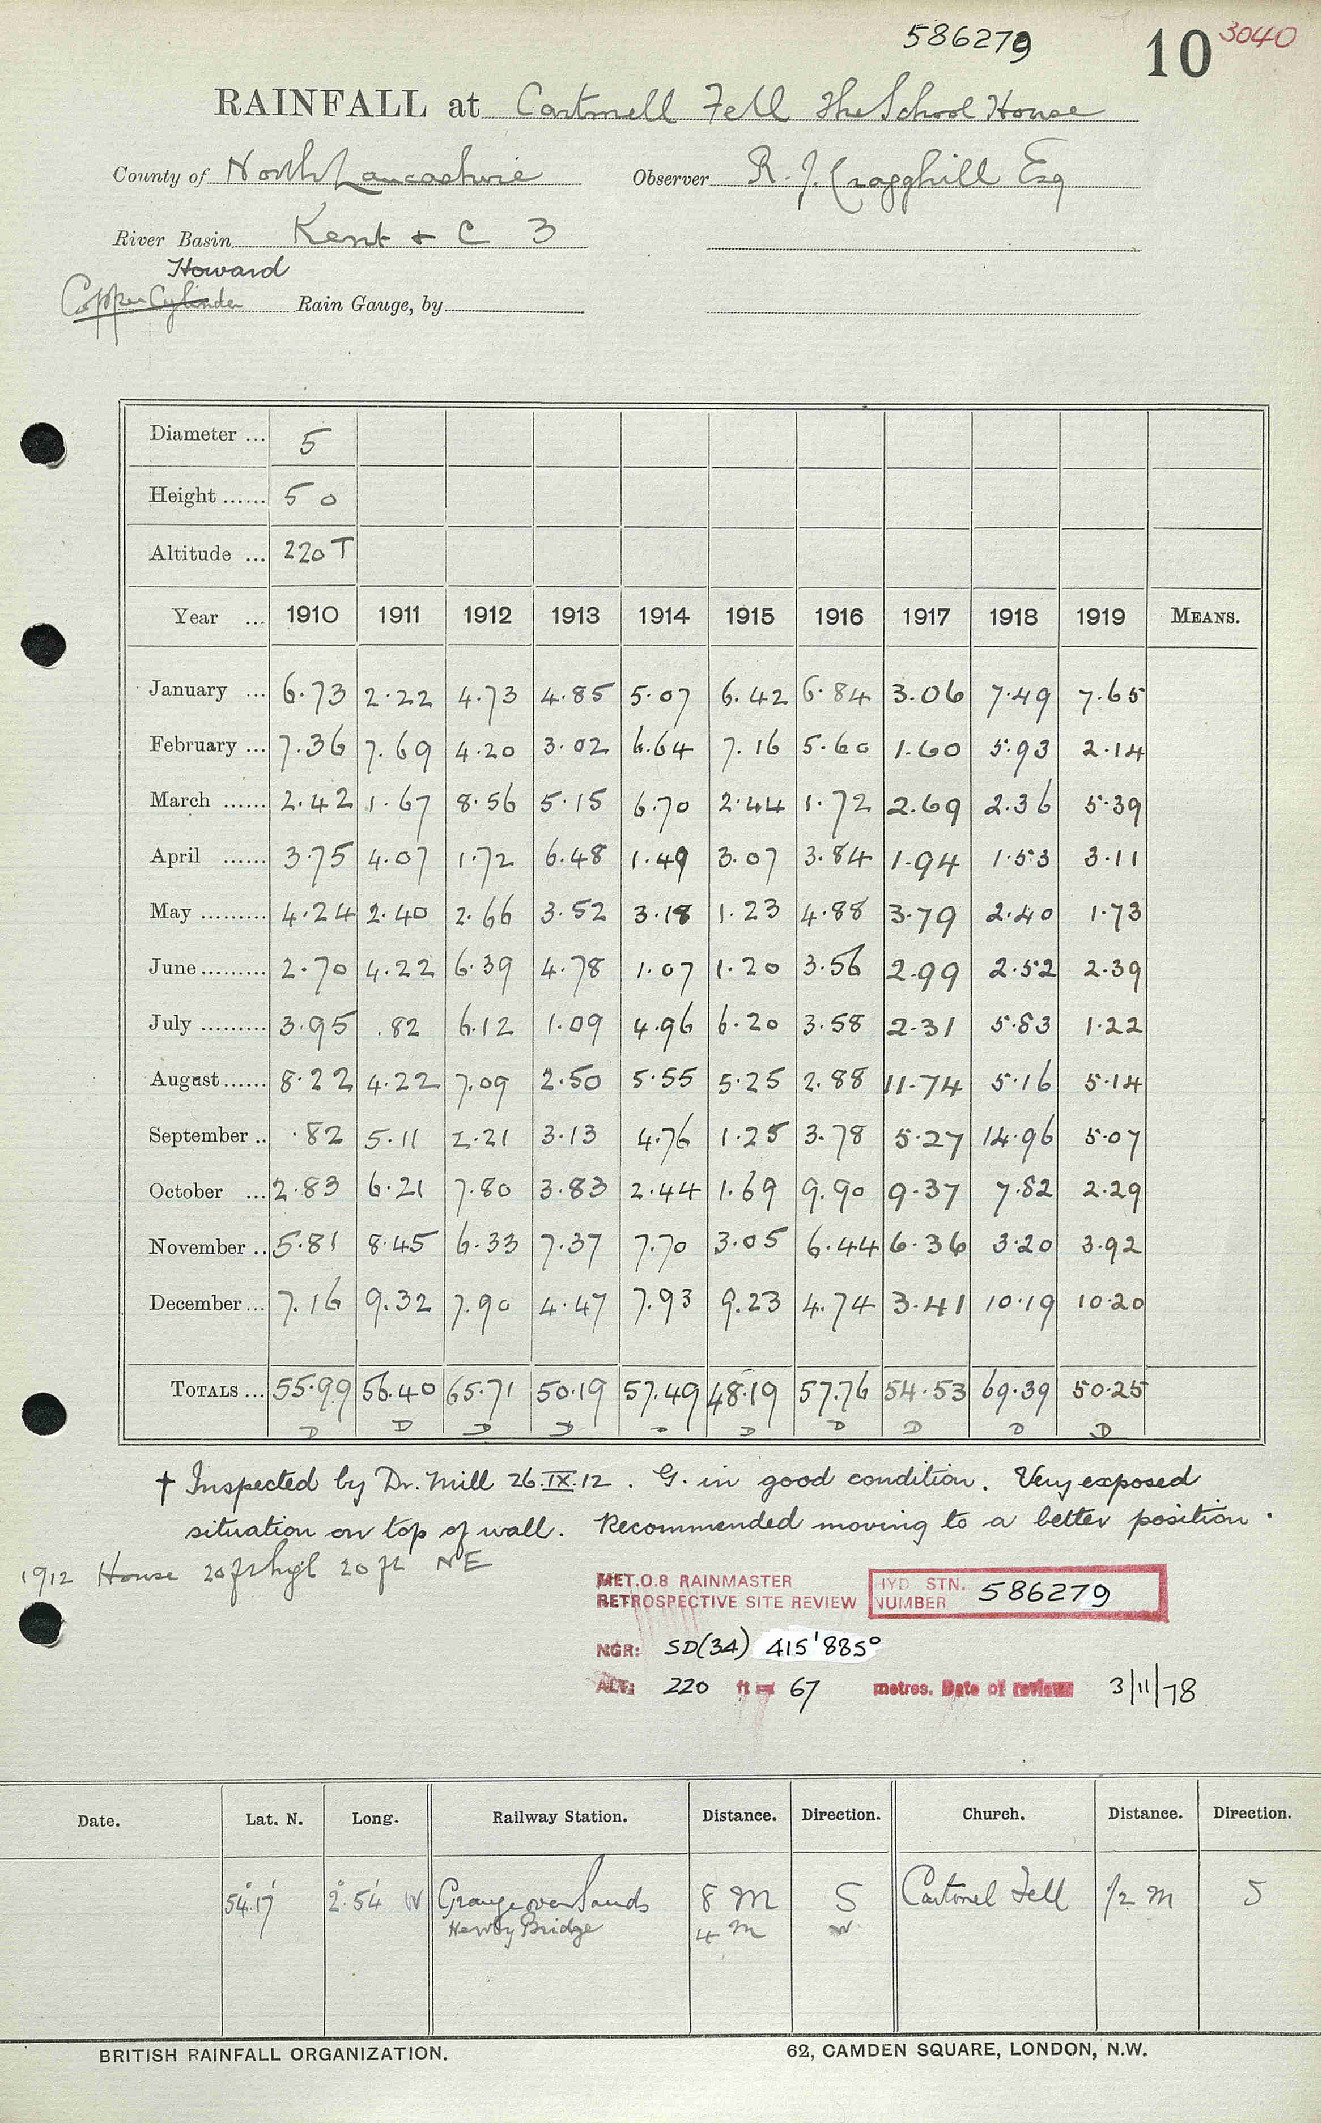 586279 10 3040
RAINFALL at Cartmell Fell The School House
County of North Lancashire Observer R. J. Cragghill Esq
River Basin Kent + C 3
Howard
Copper Cylinder Rain Gauge, by
Diameter ... 5
Height ...... 5 0
Altitude ... 220 T
Year ... 1910 1911 1912 1913 1914 1915 1916 1917 1918 1919 MEANS.
January ... 6.73 2.22 4.73 4.85 5.07 6.42 6.84 3.06 7.49 7.65
February ... 7.36 7.69 4.20 3.02 6.64 7.16 5.60 1.60 5.93 2.14
March ...... 2.42 1.67 8.56 5.15 6.70 2.44 1.72 2.69 2.36 5.39
April ...... 3.75 4.07 1.72 6.48 1.49 3.07 3.84 1.94 1.53 3.11
May ......... 4.24 2.40 2.66 3.52 3.18 1.23 4.88 3.79 2.40 1.73
June ......... 2.70 4.22 6.39 4.78 1.07 1.20 3.56 2.99 2.52 2.39
July ......... 3.95 .82 6.12 1.09 4.96 6.20 3.58 2.31 5.83 1.22
August ...... 8.22 4.22 7.09 2.50 5.55 5.25 2.88 11.74 5.16 5.14
September .. .82 5.11 2.21 3.13 4.76 1.25 3.78 5.27 14.96 5.07
October ... 2.83 6.21 7.80 3.83 2.44 1.69 9.90 9.37 7.82 2.29
November .. 5.81 8.45 6.33 7.37 7.70 3.05 6.44 6.36 3.20 3.92
December ... 7.16 9.32 7.90 4.47 7.93 9.23 4.74 3.41 10.19 10.20
TOTALS ... 55.99 56.40 65.71 50.19 57.49 48.19 57.76 54.53 69.39 50.25
D D D D D D D D D
† Inspected by Dr. Mill 26.IX.12. G. in good condition. Very exposed
situation on top of wall. Recommended moving to a better position.
1912 House 20 ft high 20 ft NE
MET.O.8 RAINMASTER
RETROSPECTIVE SITE REVIEW
HYD STN. NUMBER 586279
NGR: SD(34) 415'885°
ALT: 220 ft = 67 metres. Date of review 3/11/78
Date. Lat. N. Long. Railway Station. Distance. Direction. Church. Distance. Direction.
54°17' 2°54' W Grange over Sands 8 M S Cartmel Fell 1/2 M S
Newby Bridge 4 M W
BRITISH RAINFALL ORGANIZATION. 62, CAMDEN SQUARE, LONDON, N.W.